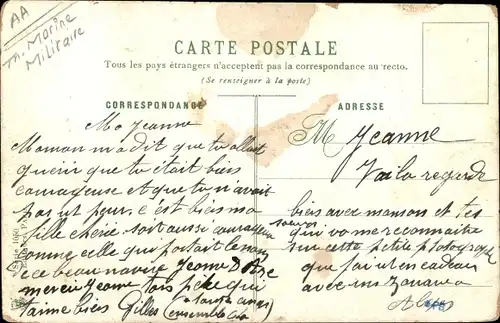 AA
Th. Marine
Militaire
CARTE POSTALE
Tous les pays étrangers n'acceptent pas la correspondance au recto.
(Se renseigner à la poste)
CORRESPONDANCE
ADRESSE
Ma Jeanne
Maman m'a dit que tu allait
querir que tu était bien
courageuse et que tu n'avait
pas ut peur. c'est bien ma
fille cherie soit aussi courageuse
comme celle que portait le nom
ce beau navire Jeanne D'Arc
merci Jeanne
t'aime bien Gilles
M Jeanne
Voila regarde
bien avec manson et tes
qui vo me reconnaitre
sur cette petite photographie
que fait un cadeau
avec un